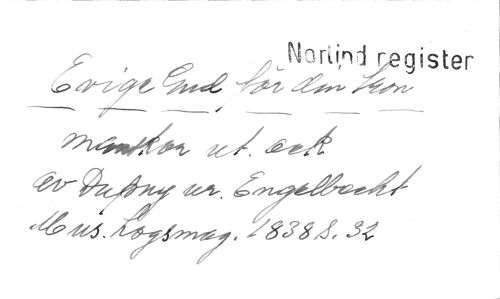 Norlind register
Evige Gud för din tron
manskör ut. ack
av Dupuy ur. Engelbrecht
Mus. Logsmag. 1838 S. 32